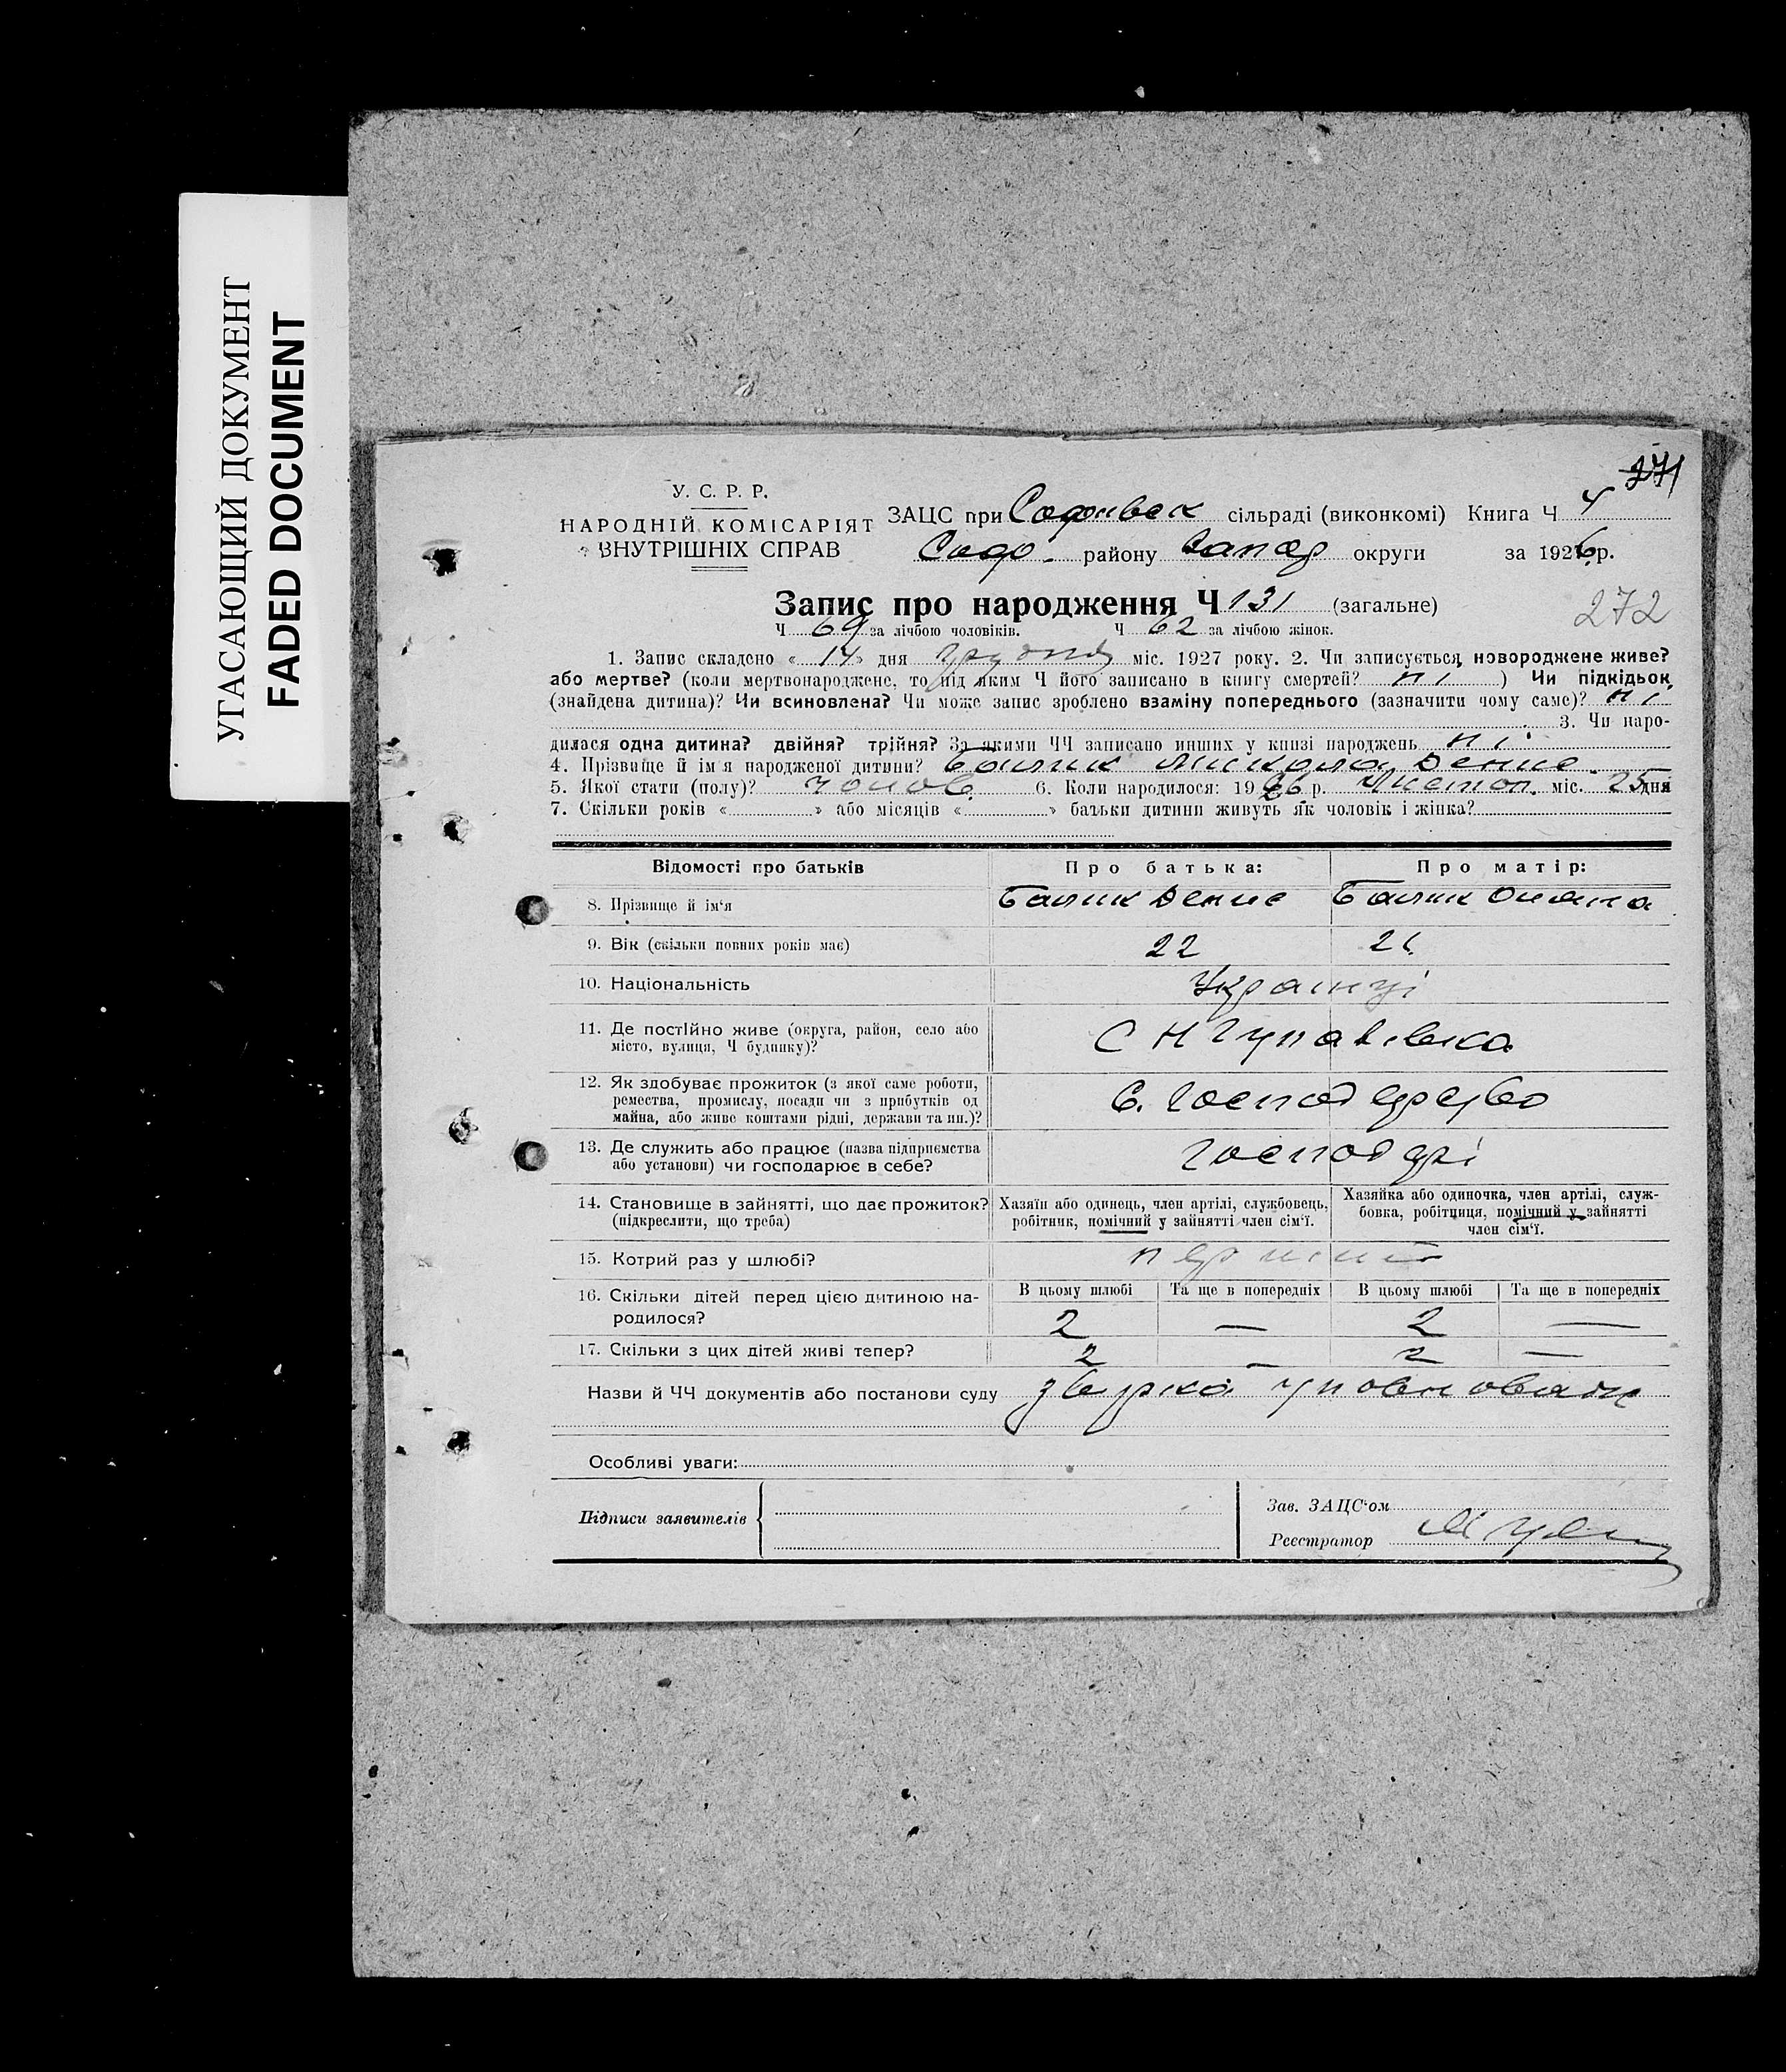 УГАСАЮЩИЙ ДОКУМЕНТ
FADED DOCUMENT
271
У. С. Р. Р.
НАРОДНІЙ КОМІСАРІЯТ
ВНУТРІШНІХ СПРАВ
ЗАЦС при Софиевск сільраді (виконкомі) Книга Ч 4
Софо. району Запор округи за 1926 р.
Запис про народження Ч 131 (загальне)
272
Ч 69 за лічбою чоловіків. Ч 62 за лічбою жінок.
1. Запис складено « 14 » дня грудня міс. 1927 року. 2. Чи записується новороджене живе?
або мертве? (коли мертвонароджене, то під яким Ч його записано в книгу смертей? ні ) Чи підкідьок
(знайдена дитина)? Чи всиновлена? Чи може запис зроблено взаміну попереднього (зазначити чому саме)? ні
3. Чи наро-
дилася одна дитина? двійня? трійня? За якими ЧЧ записано инших у книзі народжень ні
4. Прізвище й ім'я народженої дитини? Балик Микола Денис
5. Якої стати (полу)? чолов. 6. Коли народилося: 1926 р. Листоп. міс. 25 дня
7. Скільки років « » або місяців « » батьки дитини живуть як чоловік і жінка?
Відомості про батьків Про батька: Про матір:
8. Прізвище й ім'я Балик Денис Балик Оксана
9. Вік (скільки повних років має) 22
10. Національність Украинці
11. Де постійно живе (округа, район, село або
місто, вулиця, Ч будинку)? С Н
12. Як здобуває прожиток (з якої саме роботи,
ремества, промислу, посади чи з прибутків од
майна, або живе коштами рідні, держави та ин.)? С. Господарство
13. Де служить або працює (назва підприємства
або установи) чи господарює в себе? Господарі
14. Становище в зайнятті, що дає прожиток?
(підкреслити, що треба)
Хазяїн або одинець, член артілі, службовець,
робітник, помічний у зайнятті член сім'ї.
Хазяйка або одиночка, член артілі, служ-
бовка, робітниця, помічний у зайнятті
член сім'ї.
15. Котрий раз у шлюбі? перший
16. Скільки дітей перед цією дитиною на-
родилося?
В цьому шлюбі Та ще в попередніх В цьому шлюбі Та ще в попередніх
2 — 2 —
17. Скільки з цих дітей живі тепер? 2 — 2 —
Назви й ЧЧ документів або постанови суду
Особливі уваги:
Підписи заявителів
Зав. ЗАЦС'ом
Реєстратор